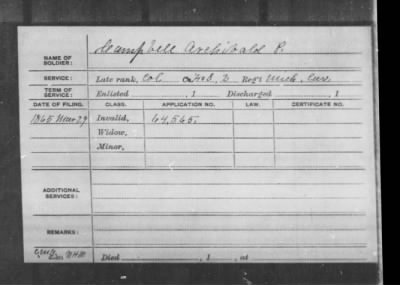 NAME OF SOLDIER: Campbell Archibald P.
SERVICE: Late rank, Col. 2 Reg't Mich. Cav.
TERM OF SERVICE: Enlisted , 1 Discharged , 1
DATE OF FILING. CLASS. APPLICATION NO. LAW. CERTIFICATE NO.
1865 Mar 29 Invalid, 64,565.
Widow,
Minor,
ADDITIONAL SERVICES:
REMARKS:
Died , 1 , at